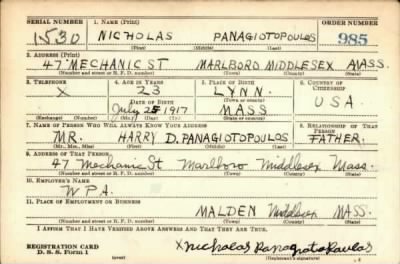 SERIAL NUMBER 1. NAME (Print) ORDER NUMBER
1530 NICHOLAS PANAGIOTOPOULOS 985
(First) (Middle) (Last)
2. ADDRESS (Print)
47 MECHANIC ST MARLBORO MIDDLESEX MASS.
(Number and street or R. F. D. number) (Town) (County) (State)
3. TELEPHONE 4. AGE IN YEARS 5. PLACE OF BIRTH 6. COUNTRY OF CITIZENSHIP
X 23 LYNN.
DATE OF BIRTH (Town or county) USA
July 25 1917 MASS
(Exchange) (Number) (Mo.) (Day) (Yr.) (State or country)
7. NAME OF PERSON WHO WILL ALWAYS KNOW YOUR ADDRESS 8. RELATIONSHIP OF THAT PERSON
MR. HARRY D. PANAGIOTOPOULOS FATHER.
(Mr., Mrs., Miss) (First) (Middle) (Last)
9. ADDRESS OF THAT PERSON
47 Mechanic St Marlboro Middlesex Mass.
(Number and street or R. F. D. number) (Town) (County) (State)
10. EMPLOYER'S NAME
W.P.A.
11. PLACE OF EMPLOYMENT OR BUSINESS
MALDEN Middlesex MASS.
(Number and street or R. F. D. number) (Town) (County) (State)
I AFFIRM THAT I HAVE VERIFIED ABOVE ANSWERS AND THAT THEY ARE TRUE.
REGISTRATION CARD
D. S. S. Form 1 X Nicholas Panagiotopoulos
(Registrant's signature)